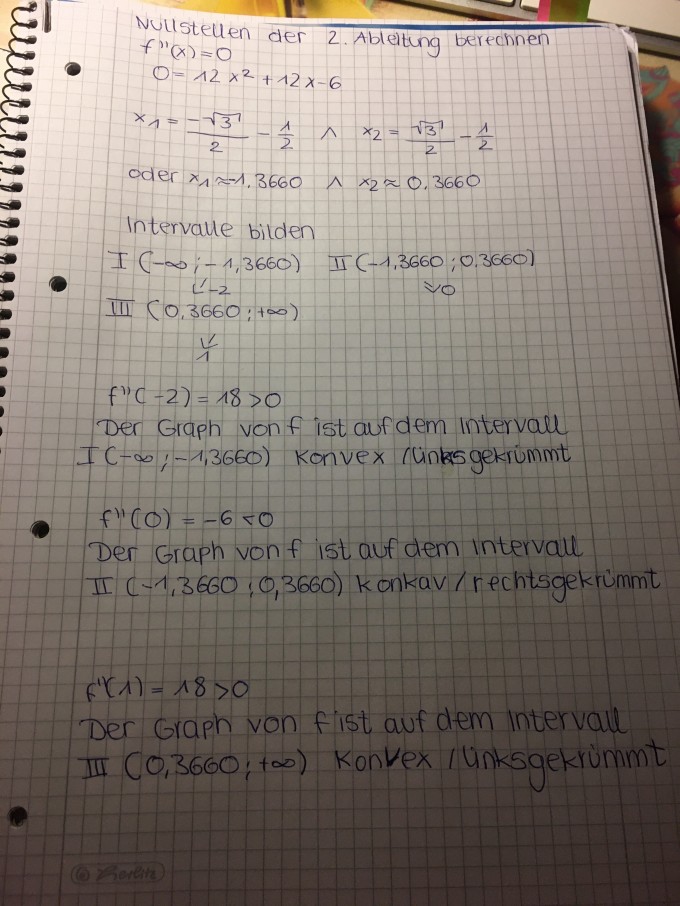 Nullstellen der 2. Ableitung berechnen
f''(x)=0
0=12x²+12x-6
x₁ = -√3/2 - 1/2 ∧ x₂ = √3/2 - 1/2
oder x₁≈-1,3660 ∧ x₂≈0,3660
Intervalle bilden
I (-∞;-1,3660) II (-1,3660;0,3660)
-2 0
III (0,3660;+∞)
1
f''(-2)=18>0
Der Graph von f ist auf dem Intervall
I (-∞;-1,3660) konvex /linksgekrümmt
f''(0) = -6 <0
Der Graph von f ist auf dem Intervall
II (-1,3660;0,3660) konkav/rechtsgekrümmt
f''(1) = 18>0
Der Graph von f ist auf dem Intervall
III (0,3660;+∞) konvex /linksgekrümmt